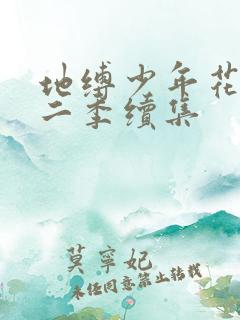 地缚少年花
二季续集
莫寧妃
未经同意禁止转载